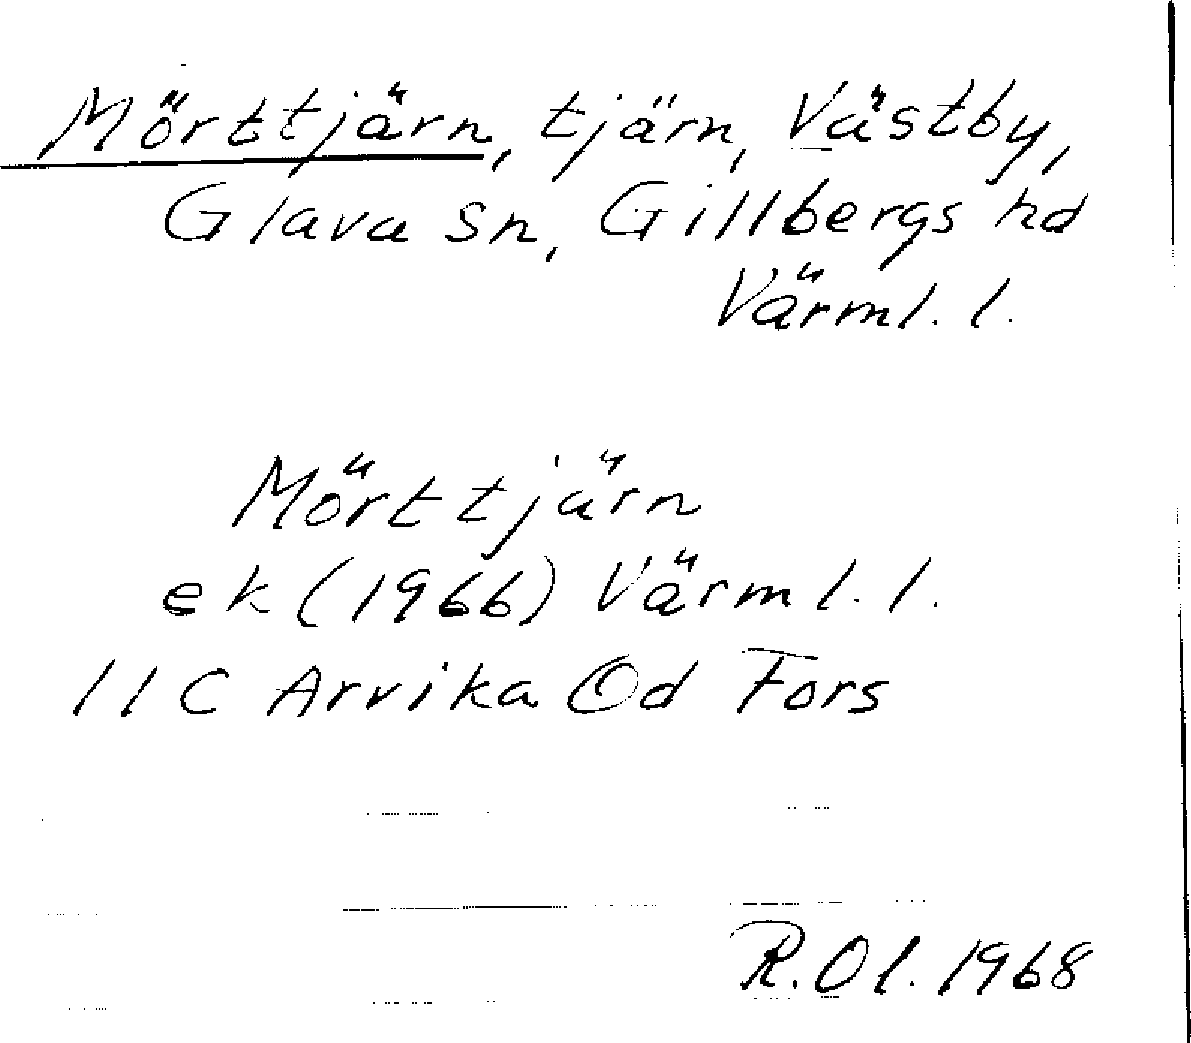 Mörttjärn, tjärn, Västby,
Glava sn, Gillbergs hd
Värml. l.
Mörttjärn
ek (1966) Värml. l.
11C Arvika Od Fors
R. Ol. 1968